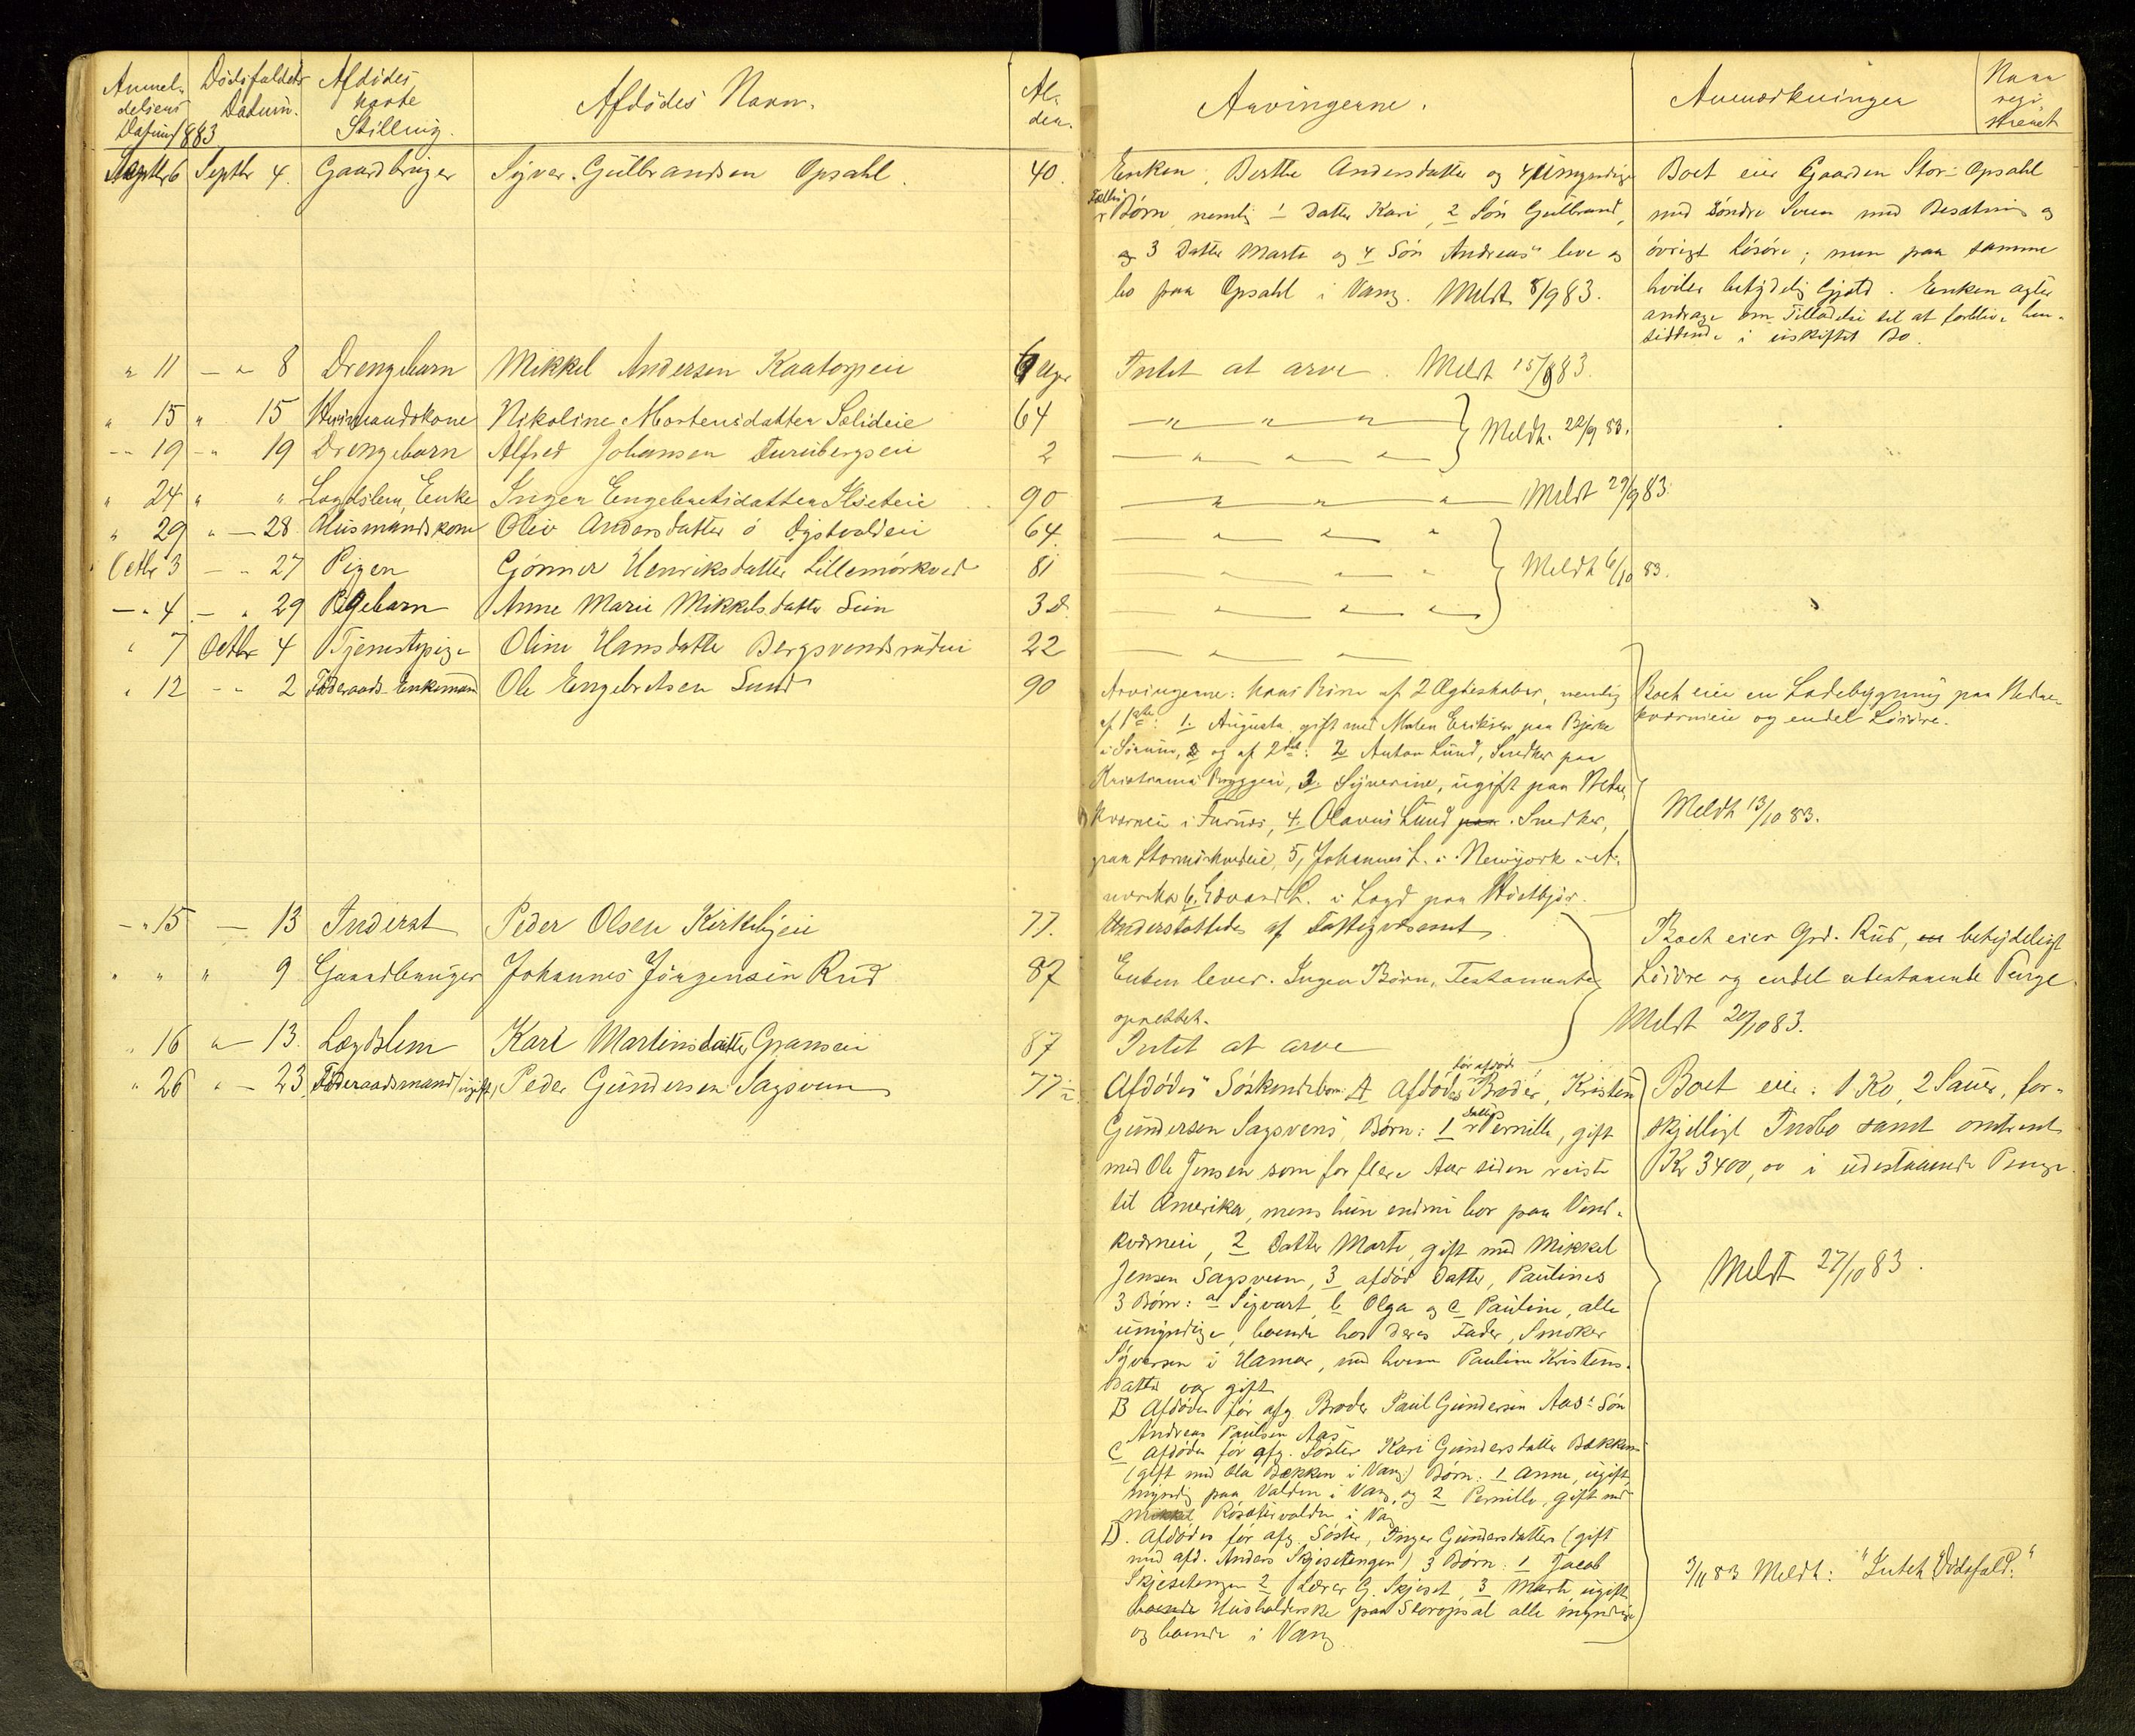 Anmel-
delsens
Datum 1883
Dødsfaldets
Datum.
Afdødes
Stilling.
Afdødes Navn.
Al-
der.
Arvingerne.
Anmærkninger
Septbr 6 Septbr 4. Gaardbruger Syver Gulbrandsen Opsahl. 40.
Enken, Berthe Andersdatter og 4 Umyndige
Børn nemlig 1 Datter Kari, 2 Søn Gulbrand,
og 3 Datter Marte og 4 Søn Andreas leve og
bo paa Opsahl i Vang. Meldt 8/9 83.
Boet eier Gaarden Stor-Opsahl
med Søndre Sveen med Besætning og
øvrigt Løsøre; men paa samme
hviler betydelig Gjæld. Enken agter
andrage om Tilladelse til at forblive hen-
siddende i uskiftet Bo.
" 11 - " 8 Drengebarn Mikkel Andersen Kaatorpeie 6 Uger Intet at arve. Meldt 15/9 83.
" 15 " 15 Husmandskone Nikoline Mortensdatter Solideie 64 — " " " Meldt. 22/9 83.
- " 19 - " 19 Drengebarn Alfred Johansen Furubergseie 2 — " " "
" 24 " " Lægdslem, Enke Inger Engebretsdatter 90 — " " " Meldt 29/9 83.
" 29 " - 28 Husmandskone Olive Andersdatter 64. — " " "
Octbr 3 - " 27 Pigen Gjønner Henriksdatter Lillemørkved 81 — " " Meldt 6/10 83.
- " 4 - " 29 Pigebarn Anne Marie Mikkelsdatter 3 d. — " " "
" 7 Octbr 4 Tjenestepige Oline Hansdatter Bergsvendsrudeie 22 — " —
" 12 - " 2 Føderaads-Enkemand Ole Engebretsen Lund 90
Arvingerne: hans Børn af 2 Ægteskaber, nemlig
af 1ste: 1. Augusta gift med Maten Eriksen paa Bjerke
og af 2det: 2 Anton Lund, Snedker paa
3. Syverine, ugift paa Nedre
i Furnes, 4. Olavus Lund paa. Snedker,
paa Stormørkvedeie, 5, Johannes L. i Newyork i A-
merika 6. Edvard L. i Lægd paa
Boet eier en Ladebygning paa Nedre-
kværneie og endel Løsøre.
Meldt 13/10 83.
- " 15 - 13 Inderst Peder Olsen Kirkebyeie 77. Understøttedes af Fattigvæsenet
" " " 9 Gaardbruger Johannes Jørgensen Rud 87 Enken lever. Ingen Børn, Testamente
oprettet.
Boet eier Grd. Rud, en betydeligt
Løsøre og endel udestaaende Penge.
Meldt 20/10 83.
" 16 " - 13. Lægdslem Kari Martinsdatter Granseie 87 Intet at arve
" 26 " - 23. Føderaadsmand (ugift) Peder Gundersen Sagsveen 77 ½
Afdødes Søskendebørn: A Afdødes før afdøde Broder, Kristen
Gundersen Sagsvens Børn: 1 Datter Pernille, gift
med Ole Jensen som for flere Aar siden reiste
til Amerika, mens hun endnu bor paa Vind-
kværneie, 2 Datter Marte, gift med Mikkel
Jensen Sagsveen, 3 afdød Datter, Paulines
3 Børn: a Sigvart, b Olga og c Pauline, alle
umyndige, boende hos deres Fader, Smeker
Syversen i Hamar, med hvem Pauline Kristens-
datter var gift
B Afdødes før afg. Broder Paul Gundersen Aas's Søn
Andreas Paulsen Aas
C Afdødes før afg. Søster Kari Gundersdatter Bækken
(gift med Ola Bækken i Vang) Børn: 1 Anne, ugift,
myndig paa Valden i Vang, og 2 Pernille, gift med
Mikkel Røsætervalden i Vang
D. Afdødes før afg. Søster, Inger Gundersdatters (gift
med afd. Anders Skjesetengen) 3 Børn: 1 Jacob
Skjesetengen 2 Lærer G. Skjeset, 3 Marte ugift
boende Husholderske paa Storopsal alle myndige
og boende i Vang.
Boet eier: 1 Ko, 2 Sauer, for-
skjelligt Indbo samt omtrent
Kr 3400,00 i udestaaende Penge.
Meldt 27/10 83.
3/11 83 Meldt: "Intet Dødsfald."